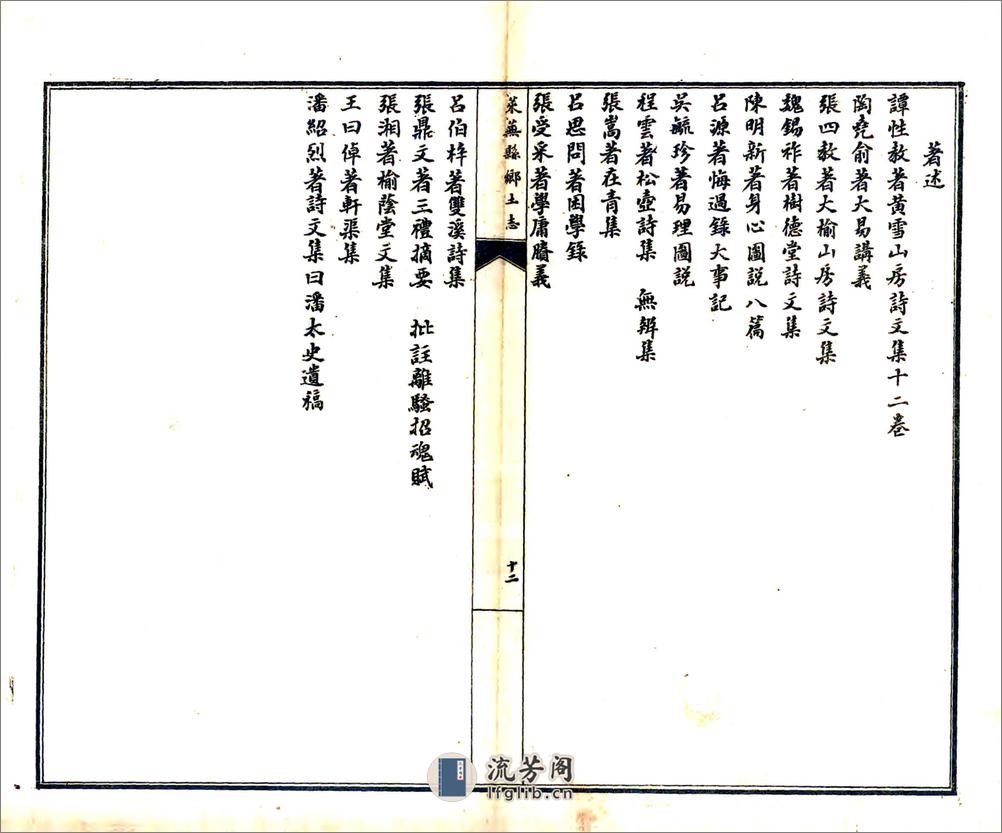 著述
譚性教著黄雪山房詩文集十二卷
陶堯俞著大易講義
張四教著大榆山房詩文集
魏錫祚著樹德堂詩文集
陳明新著身心圖說八篇
呂源著悔過錄大事記
吳毓珍著易理圖說
程雲著松壺詩集　無辨集
張嵩著在青集
呂思問著困學錄
張受采著學庸賸義
萊蕪縣鄉土志
十二
呂伯梓著雙溪詩集
張鼎文著三禮摘要　批註離騷招魂賦
張湘著榆蔭堂文集
王曰倬著軒渠集
潘紹烈著詩文集曰潘太史遺稿
流芳阁
lfglib.cn